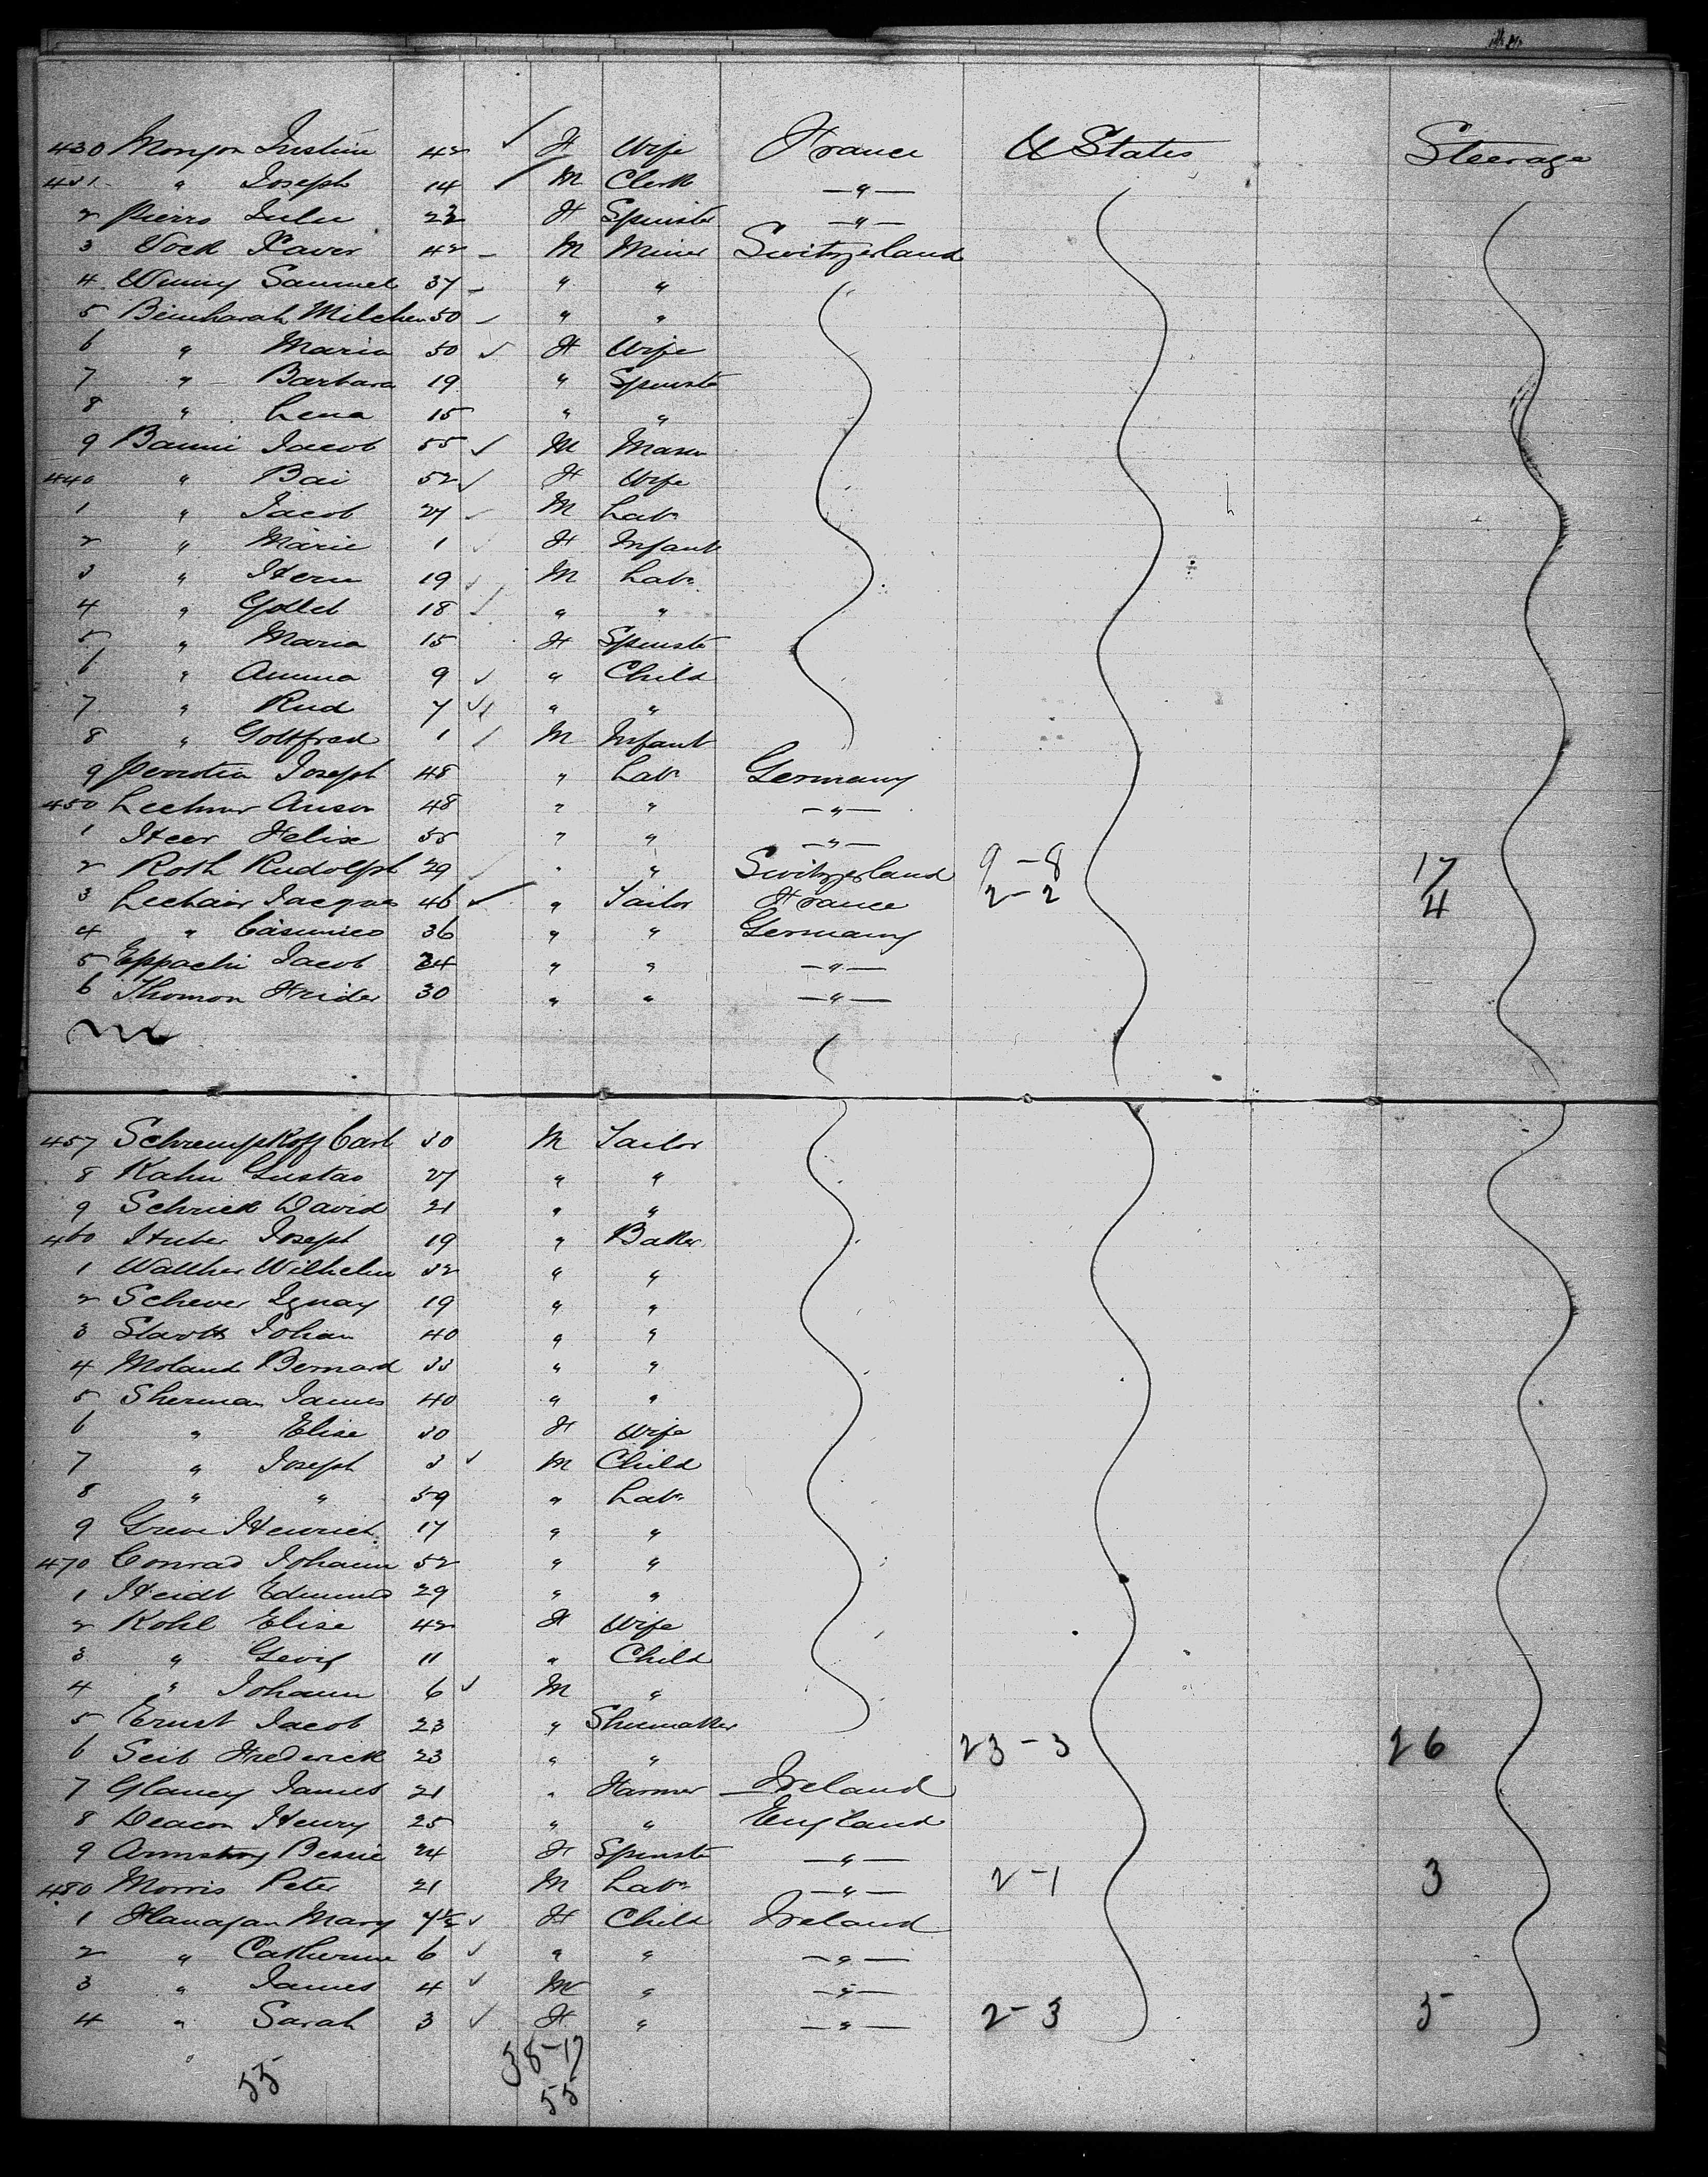 430 Monyon Justine 42 ✓ F Wife France U States Steerage
431 " Joseph 14 ✓ M Clerk — " —
2 Pierro Julie 22 F Spinstr — " —
3 Vock Xaver 42 M Miner Switzerland
4 Samuel 37 " "
5 50 " "
6 " Maria 50 ✓ F Wife
7 " Barbara 19 " Spinstr
8 " Lena 15 " "
9 Baumi Jacob 55 ✓ M Mason
440 " Bai 52 ✓ F Wife
1 " Jacob 27 M Labr
2 " Marie 1 F Infant
3 " Hern 19 M Labr
4 " Gotleb 18 ✓ " "
5 " Maria 15 F Spinstr
6 " Amma 9 ✓ " Child
7 " Rud 7 ✓ " "
8 " Gottfred 1 ✓ M Infant
9 Joseph 48 " Labr Germany
450 48 " " — " —
1 Heer Felix 35 " " — " —
2 Roth Rudolph 29 " " Switzerland 9 - 8 17
3 Lechair Jacques 46 ✓ " Tailor France 2 - 2 4
4 " Casimico 36 " " Germany
5 Eppachi Jacob 24 " " — " —
6 Thomon Frider 30 " " — " —
457 Schrempkoff Carl 30 M Tailor
8 Kahn Gustav 27 " "
9 Schrick David 21 " "
460 Huber Joseph 19 " Baker
1 Walther Wilhelm 32 " "
2 Schever Ignaz 19 " "
3 Johan 40 " "
4 Moland Bernard 33 " "
5 Sherman James 40 " "
6 " Elise 30 F Wife
7 " Joseph 3 ✓ M Child
8 " " 59 " Labr
9 Greve Heinrich 17 " "
470 Conrad Johann 52 " "
1 Heidt Edmund 29 " "
2 Kohl Elise 42 F Wife
3 " Georg 11 " Child
4 " Johann 6 ✓ M "
5 Ernst Jacob 23 " Shoemaker
6 Seib Frederick 23 " " 23 - 3 26
7 Glancy James 21 " Farmer Ireland
8 Deacon Henry 25 " " England
9 Armstrong Bessie 24 F Spinstr — " —
480 Morris Peter 21 M Labr — " — 2 - 1 3
1 Flanagan Mary 7½ ✓ F Child Ireland
2 " Catherine 6 ✓ " " — " —
3 " James 4 ✓ M " — " —
4 " Sarah 3 ✓ F " — " — 2 - 3 5
38-17
55 55